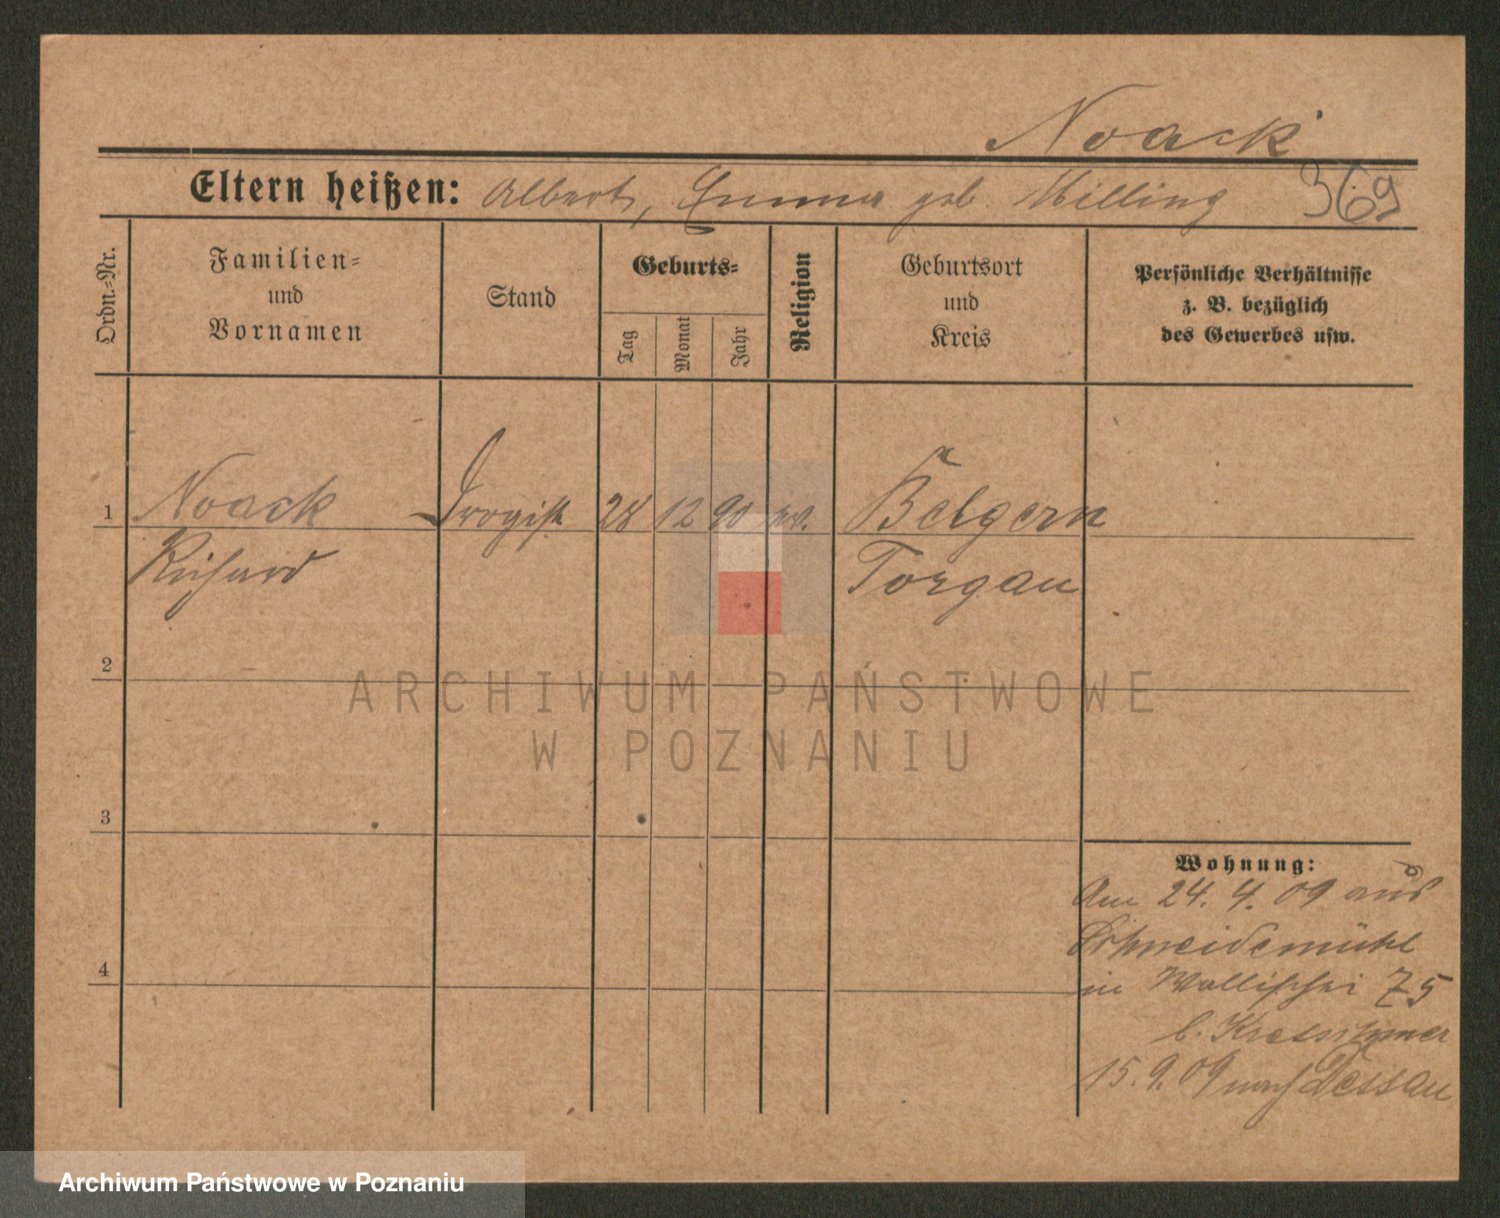 Noack
Eltern heißen: Albert, Emma geb. Milling 369
Ordn.-Nr.
Familien-
und
Vornamen
Stand
Geburts-
Tag
Monat
Jahr
Religion
Geburtsort
und
Kreis
Persönliche Verhältnisse
z. B. bezüglich
des Gewerbes usw.
1 Noack Drogist 28 12 90 ev. Belgern
Richard Torgau
2
ARCHIWUM PAŃSTWOWE
W POZNANIU
3
Wohnung:
Am 24. 4. 09 aus
Schneidemühl
in Wallischei 75
b.
15. 9. 09 nach Dessau
4
Archiwum Państwowe w Poznaniu